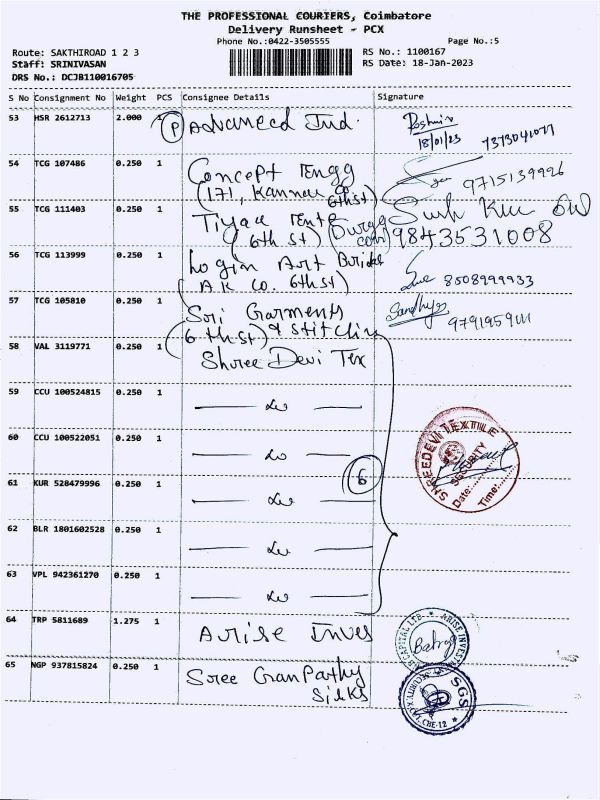 THE PROFESSIONAL COURIERS, Coimbatore
Delivery Runsheet - PCX
Phone No.:0422-3505555 Page No.:5
Route: SAKTHIROAD 1 2 3 RS No.: 1100167
Staff: SRINIVASAN RS Date: 18-Jan-2023
DRS No.: DCJB110016705
S No Consignment No Weight PCS Consignee Details Signature
53 HSR 2612713 2.000 1 P Advanced Ind.
18/01/23 7373041077
54 TCG 107486 0.250 1 Concept Engg
(171, Kannau Co 6th st) 9715139926
55 TCG 111403 0.250 1 Tiyaa
(6th st) 9843531008
56 TCG 113999 0.250 1 Login Art Bridal
A.K Co. 6th st) 8508999933
57 TCG 105810 0.250 1 Sri Garments
6th st) & Stitching Sandhya
58 VAL 3119771 0.250 1 Shree Devi Tex
59 CCU 100524815 0.250 1
60 CCU 100522051 0.250 1
61 KUR 528479996 0.250 1 6
62 BLR 1801602528 0.250 1
63 VPL 942361270 0.250 1
SHREEDEVI TEXTILE
SECURITY
Date:
Time:
64 TRP 5811689 1.275 1 Arise Inves
65 NGP 937815824 0.250 1 Sree Ganpathy
Silks
SGS
CBE-12